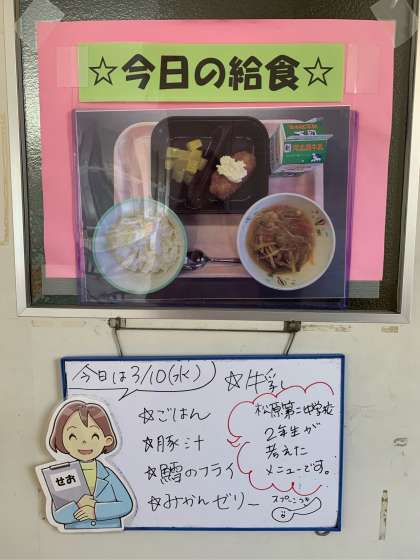 ☆今日の給食☆
今日は3/10(水)
☆牛乳
☆ごはん
☆豚汁
☆鱈のフライ
☆みかんゼリー
松原第二中学校
2年生が
考えた
メニューです。
せお